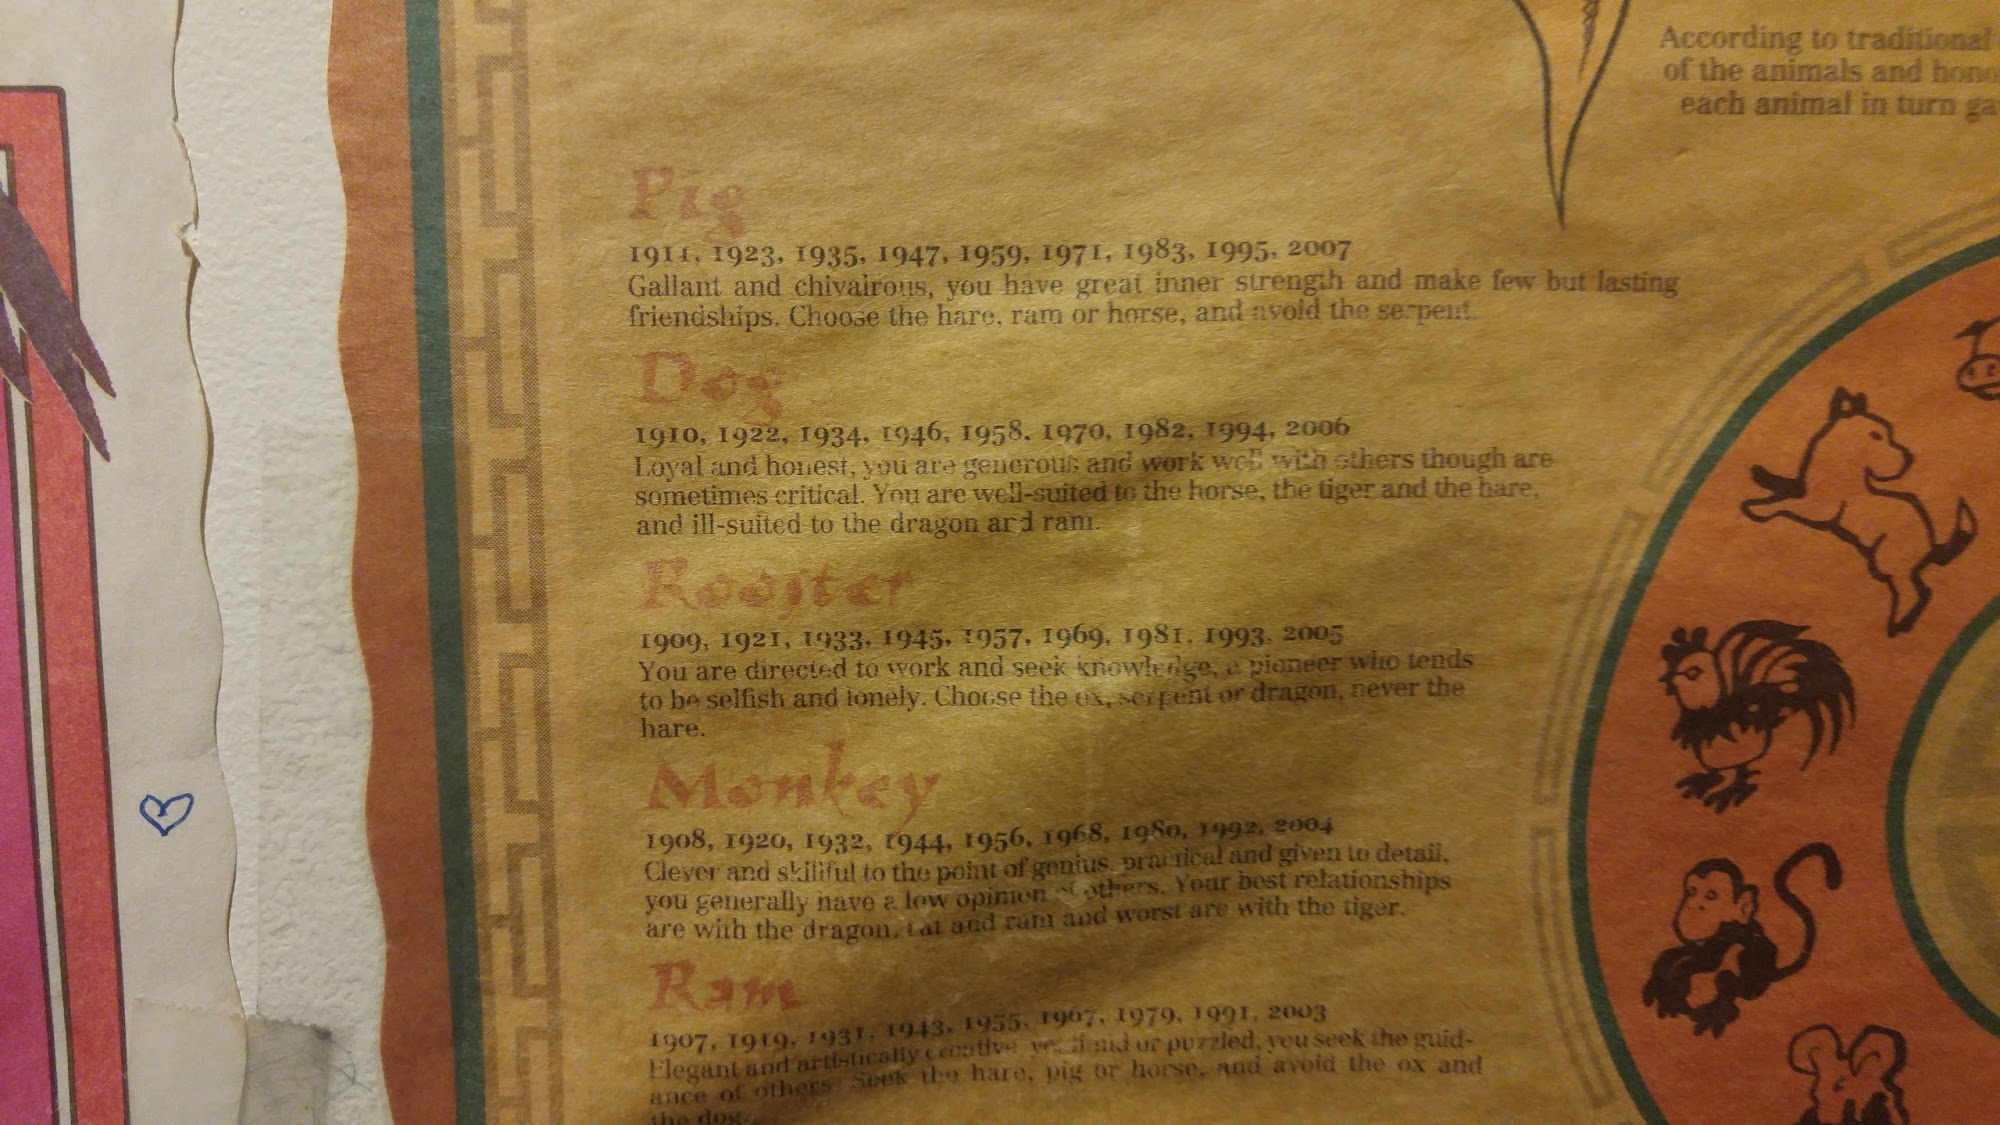 According to traditional
of the animals and hono
each animal in turn ga
Pig
1911, 1923, 1935, 1947, 1959, 1971, 1983, 1995, 2007
Gallant and chivairous, you have great inner strength and make few but lasting
friendships. Choose the hare, ram or horse, and avoid the serpent.
Dog
1910, 1922, 1934, 1946, 1958, 1970, 1982, 1994, 2006
Loyal and honest, you are generous and work well with others though are
sometimes critical. You are well-suited to the horse, the tiger and the hare,
and ill-suited to the dragon and ram.
Rooster
1909, 1921, 1933, 1945, 1957, 1969, 1981, 1993, 2005
You are directed to work and seek knowledge, a pioneer who tends
to be selfish and lonely. Choose the ox, serpent or dragon, never the
hare.
Monkey
1908, 1920, 1932, 1944, 1956, 1968, 1980, 1992, 2004
Clever and skillful to the point of genius, practical and given to detail,
you generally have a low opinion of others. Your best relationships
are with the dragon, rat and ram and worst are with the tiger.
Ram
1907, 1919, 1931, 1943, 1955, 1967, 1979, 1991, 2003
Elegant and artistically creative, yet timid or puzzled, you seek the guid-
ance of others. Seek the hare, pig or horse, and avoid the ox and
the dog.